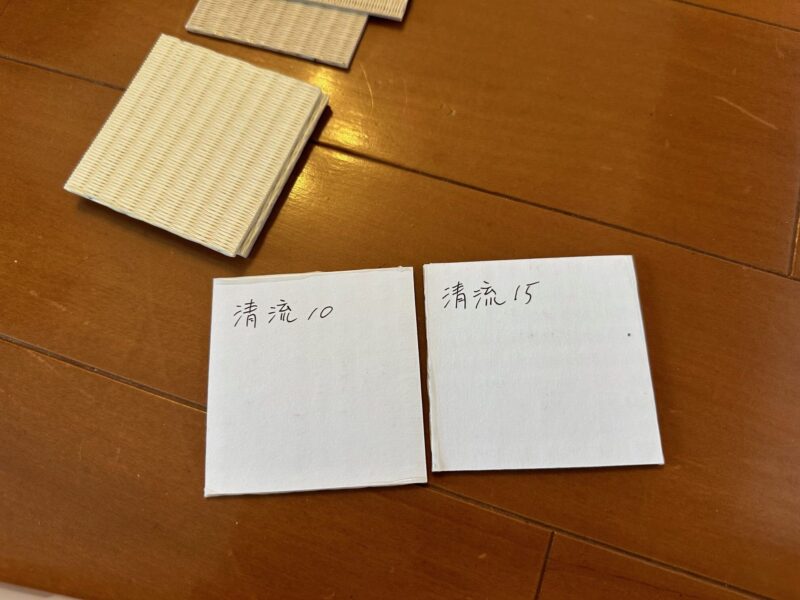 清流10
清流15